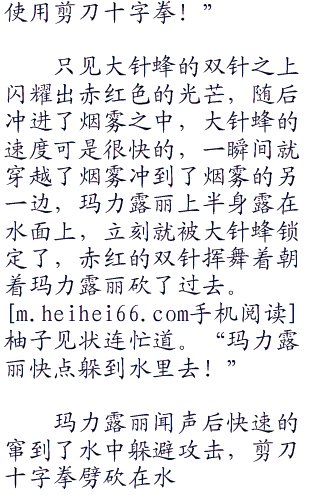 使用剪刀十字拳！”
只见大针蜂的双针之上
闪耀出赤红色的光芒，随后
冲进了烟雾之中，大针蜂的
速度可是很快的，一瞬间就
穿越了烟雾冲到了烟雾的另
一边，玛力露丽上半身露在
水面上，立刻就被大针蜂锁
定了，赤红的双针挥舞着朝
着玛力露丽砍了过去。
[m.heihei66.com手机阅读]
柚子见状连忙道。“玛力露
丽快点躲到水里去！”
玛力露丽闻声后快速的
窜到了水中躲避攻击，剪刀
十字拳劈砍在水